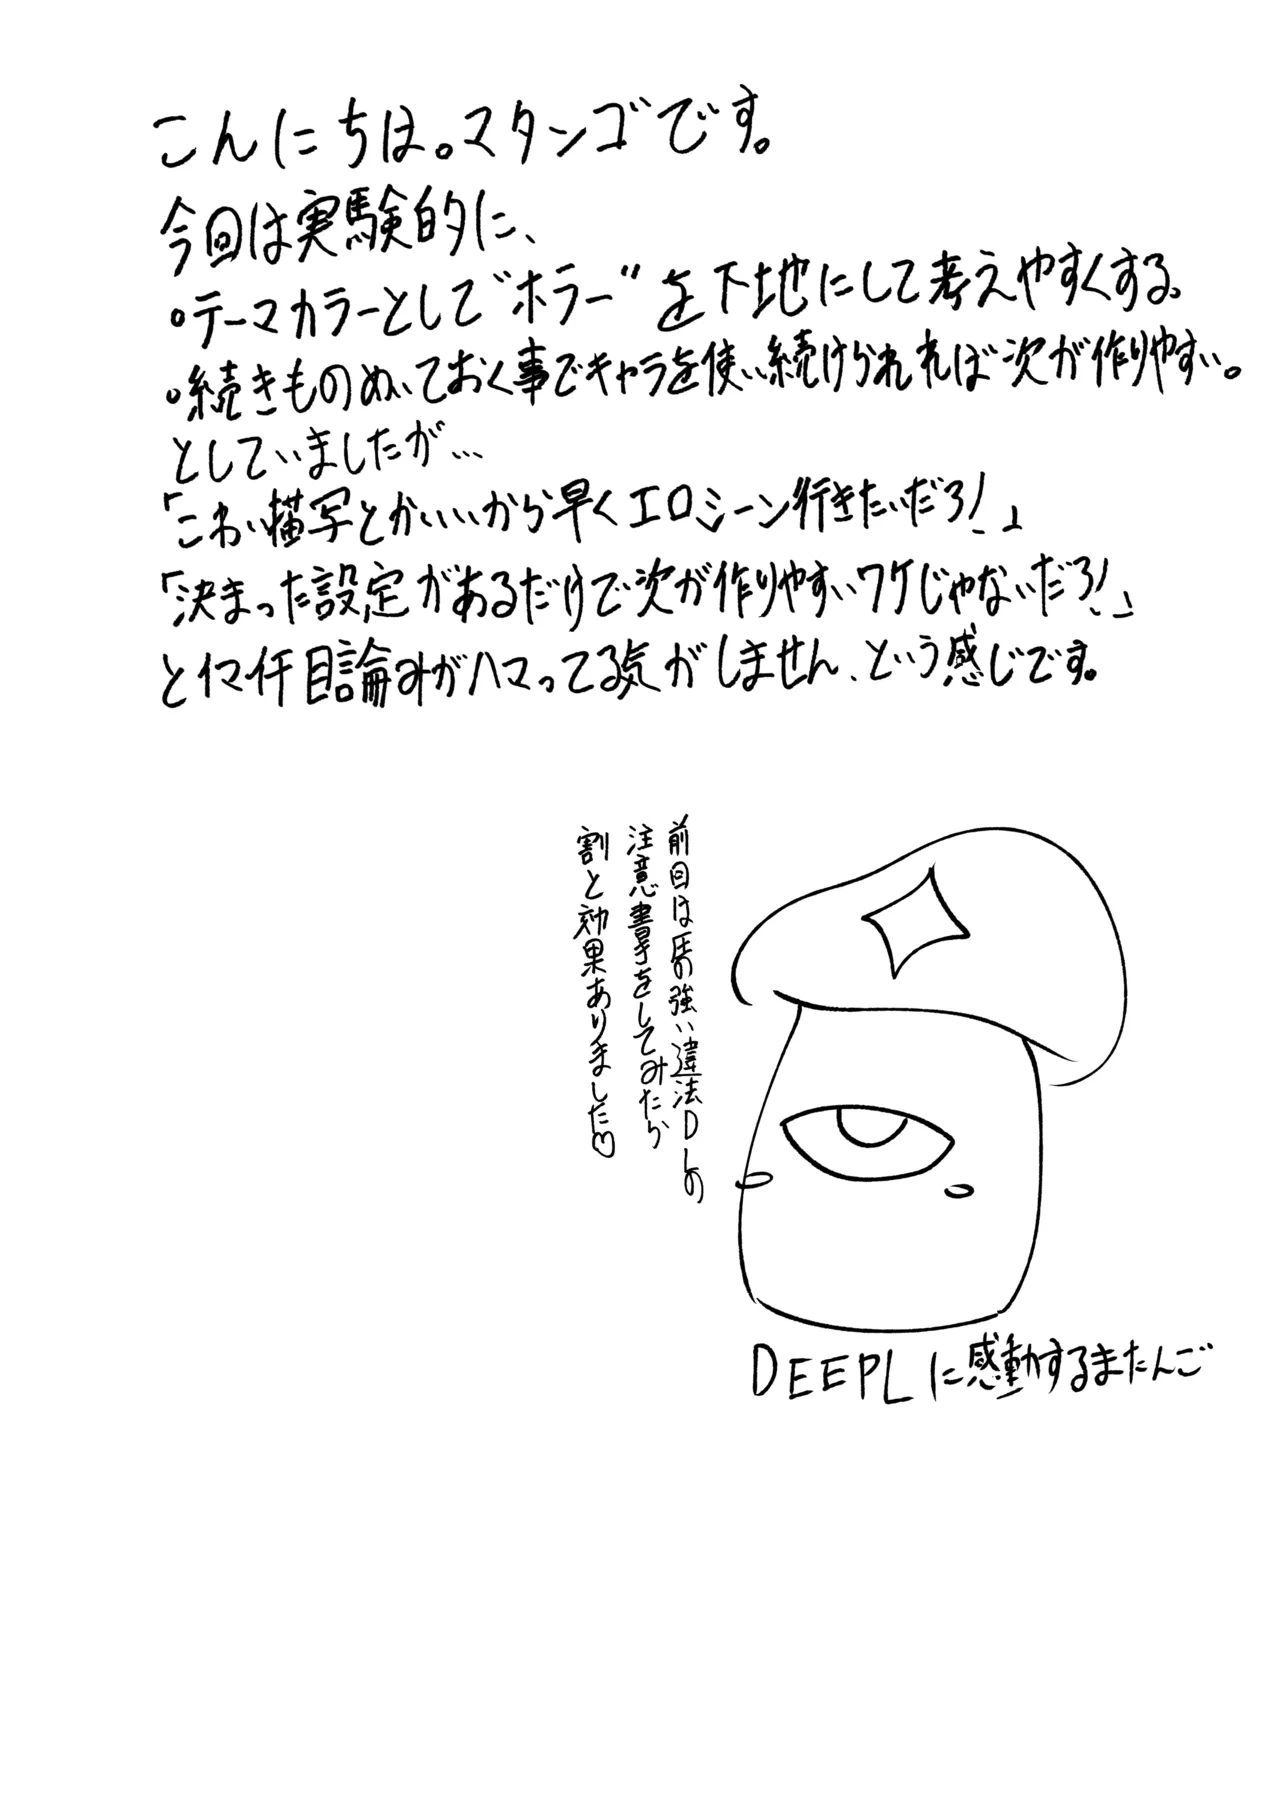 こんにちは。マタンゴです。
今回は実験的に、
・テーマカラーとして"ホラー"を下地にして考えやすくする。
・続きものぬいておく事でキャラを使い続けられれば次が作りやすい。
としていましたが…
「こわい描写とかいいから早くエロシーン行きたいだろ!」
「決まった設定があるだけで次が作りやすいワケじゃないだろ!」
とイマイチ目論みがハマってる気がしません、という感じです。
前回は圧の強い違法DLの
注意書きをしてみたら
割と効果ありました♡
DEEPLに感動するまたんご